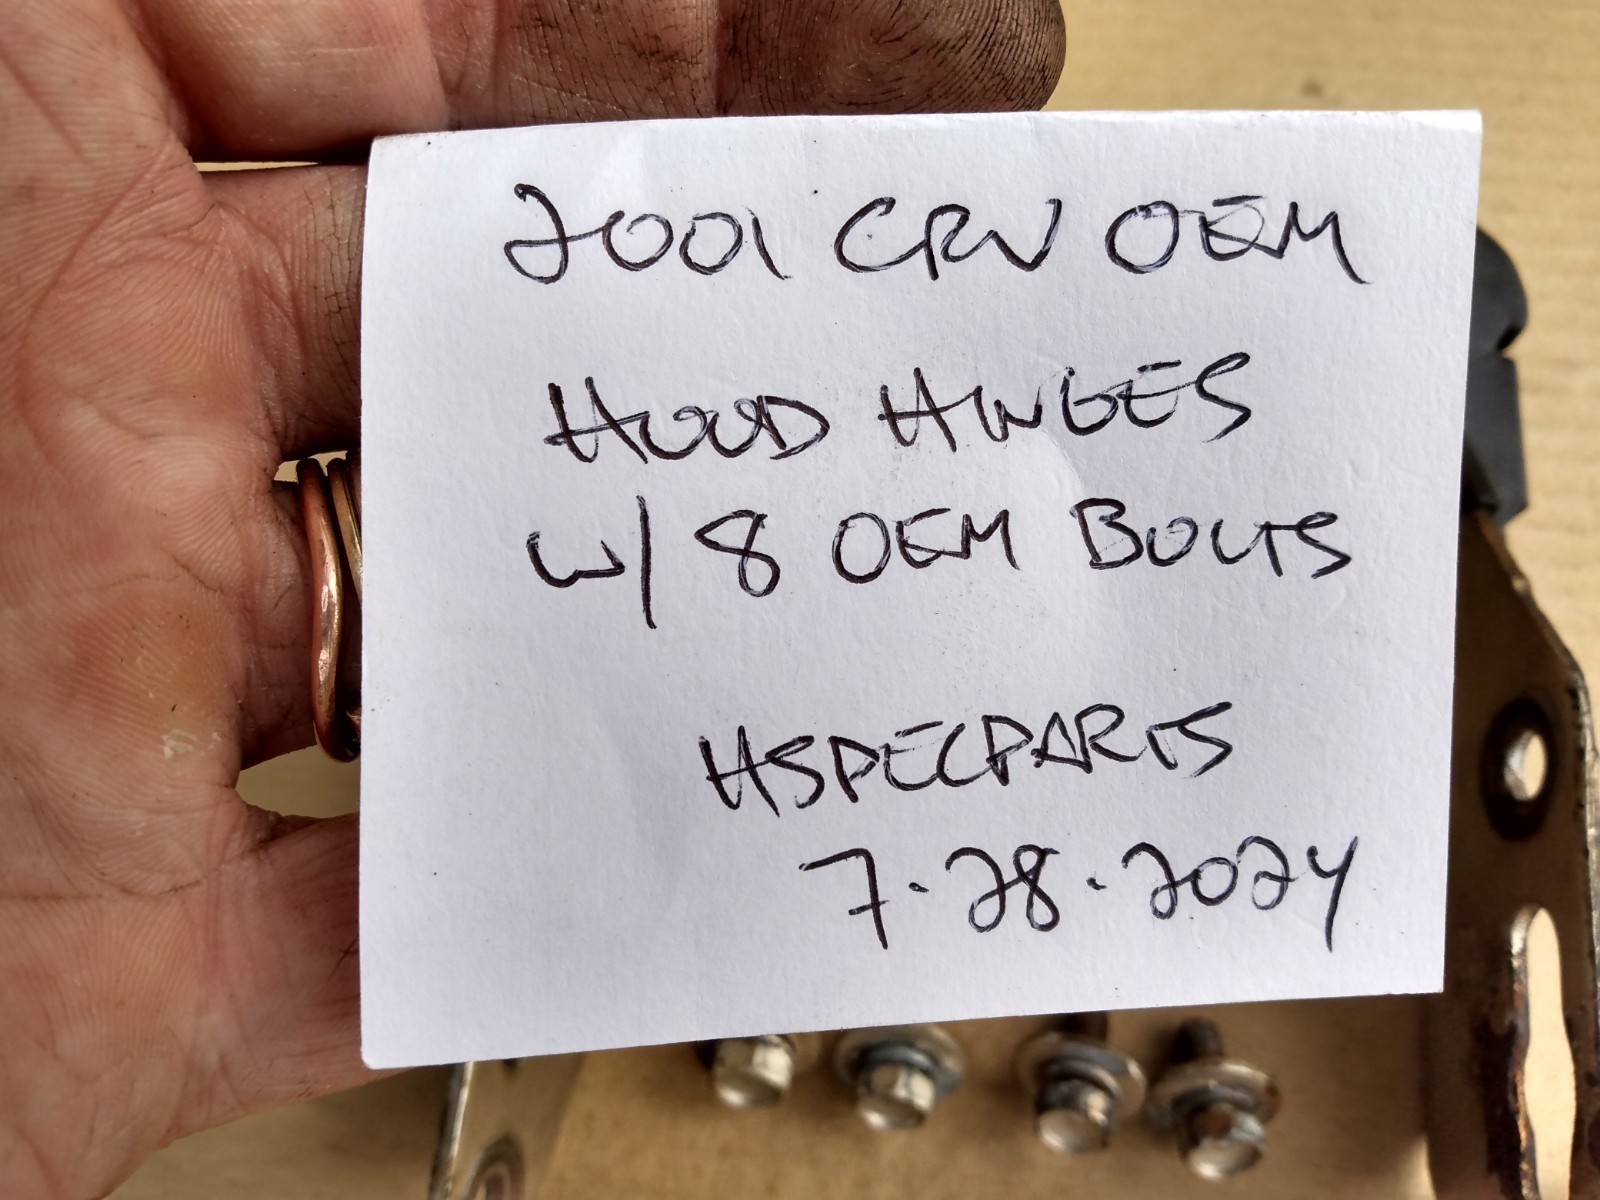 2001 CRV OEM
HOOD HINGES
W/ 8 OEM BOLTS
HSPECPARTS
7.28.2024